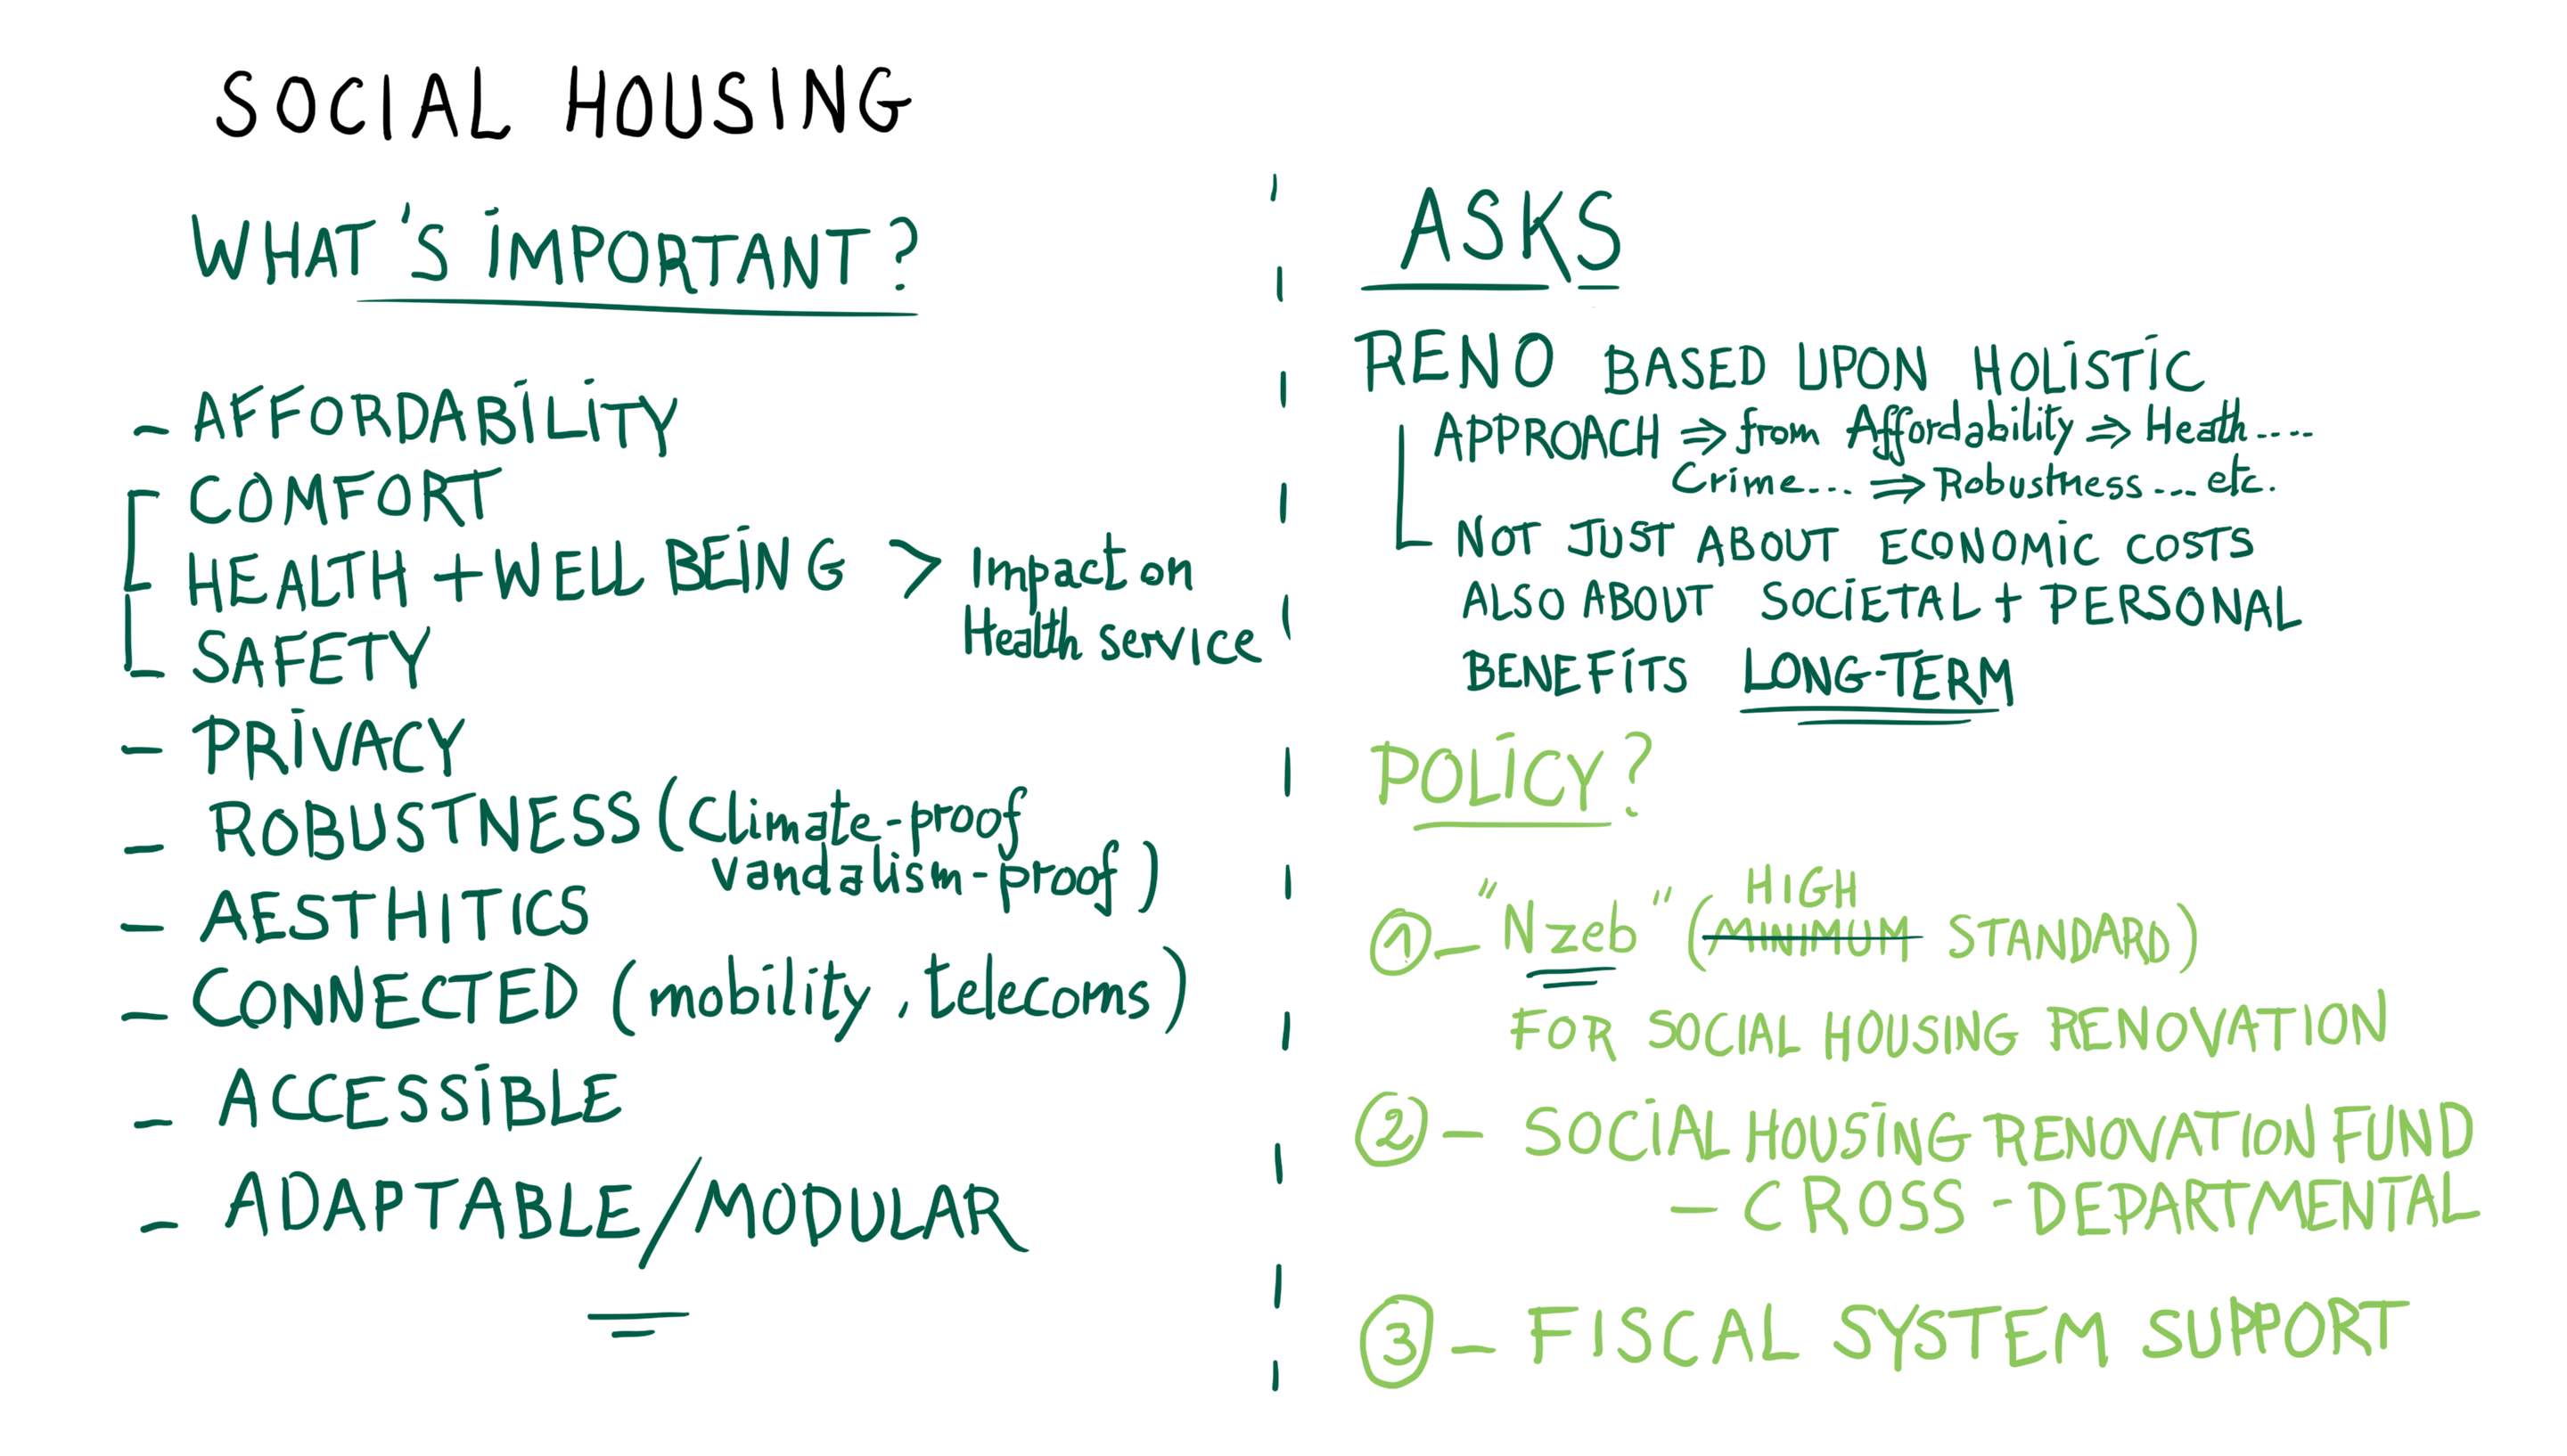 SOCIAL HOUSING
WHAT'S IMPORTANT?
- AFFORDABILITY
COMFORT
HEALTH + WELL BEING > Impact on
Health service
SAFETY
- PRIVACY
- ROBUSTNESS (Climate-proof
vandalism-proof)
- AESTHITICS
- CONNECTED (mobility, telecoms)
- ACCESSIBLE
- ADAPTABLE/MODULAR
ASKS
RENO BASED UPON HOLISTIC
APPROACH ⇒ from Affordability ⇒ Heath....
Crime... ⇒ Robustness.... etc.
NOT JUST ABOUT ECONOMIC COSTS
ALSO ABOUT SOCIETAL + PERSONAL
BENEFITS LONG-TERM
POLICY?
HIGH
① - "Nzeb" (MINIMUM STANDARD)
FOR SOCIAL HOUSING RENOVATION
② - SOCIAL HOUSING RENOVATION FUND
- CROSS-DEPARTMENTAL
③ - FISCAL SYSTEM SUPPORT